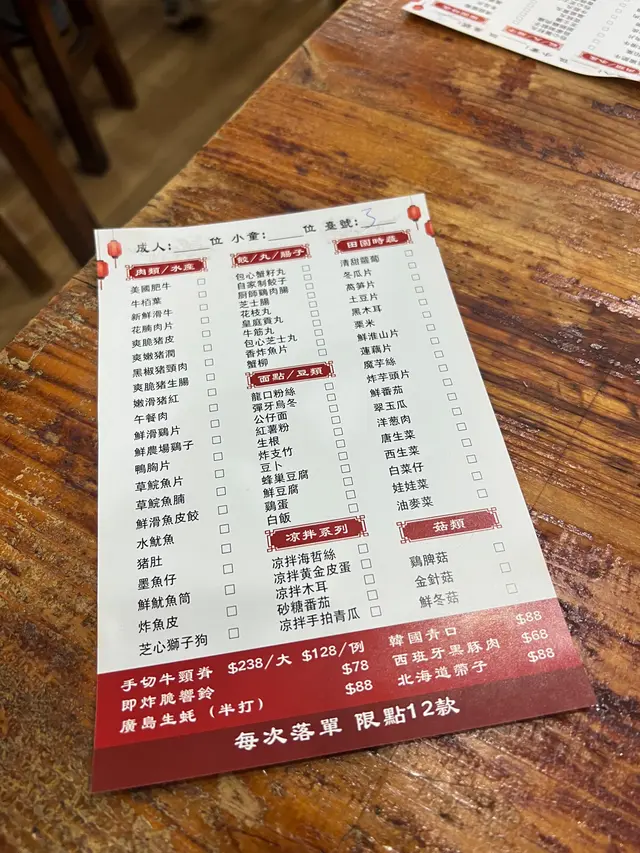 成人:____位 小童:____位 臺號:3
肉類/水産
美國肥牛
牛栢葉
新鮮滑牛
花腩肉片
爽脆猪皮
爽嫩猪潤
黑椒猪頸肉
爽脆猪生腸
嫩滑猪紅
午餐肉
鮮滑鷄片
鮮農場鷄子
鴨胸片
草魚片
草魚腩
鮮滑魚皮餃
水魷魚
猪肚
墨魚仔
鮮魷魚筒
炸魚皮
芝心獅子狗
餃/丸/腸子
包心蟹籽丸
自家制餃子
厨師鷄肉腸
芝士腸
花枝丸
皇庭貢丸
牛筋丸
包心芝士丸
香炸魚片
蟹柳
面點/豆類
龍口粉絲
彈牙烏冬
公仔面
紅薯粉
生根
炸支竹
豆卜
蜂巢豆腐
鮮豆腐
鷄蛋
白飯
凉拌系列
凉拌海哲絲
凉拌黄金皮蛋
凉拌木耳
砂糖番茄
凉拌手拍青瓜
田園時蔬
清甜蘿蔔
冬瓜片
萵笋片
土豆片
黑木耳
粟米
鮮淮山片
蓮藕片
魔芋絲
炸芋頭片
鮮番茄
翠玉瓜
洋葱肉
唐生菜
西生菜
白菜仔
娃娃菜
油麥菜
菇類
鷄脾菇
金針菇
鮮冬菇
手切牛頸脊 $238/大 $128/例
即炸脆響鈴 $78
廣島生蚝（半打） $88
韓國青口 $88
西班牙黑豚肉 $68
北海道帶子 $88
每次落單 限點12款